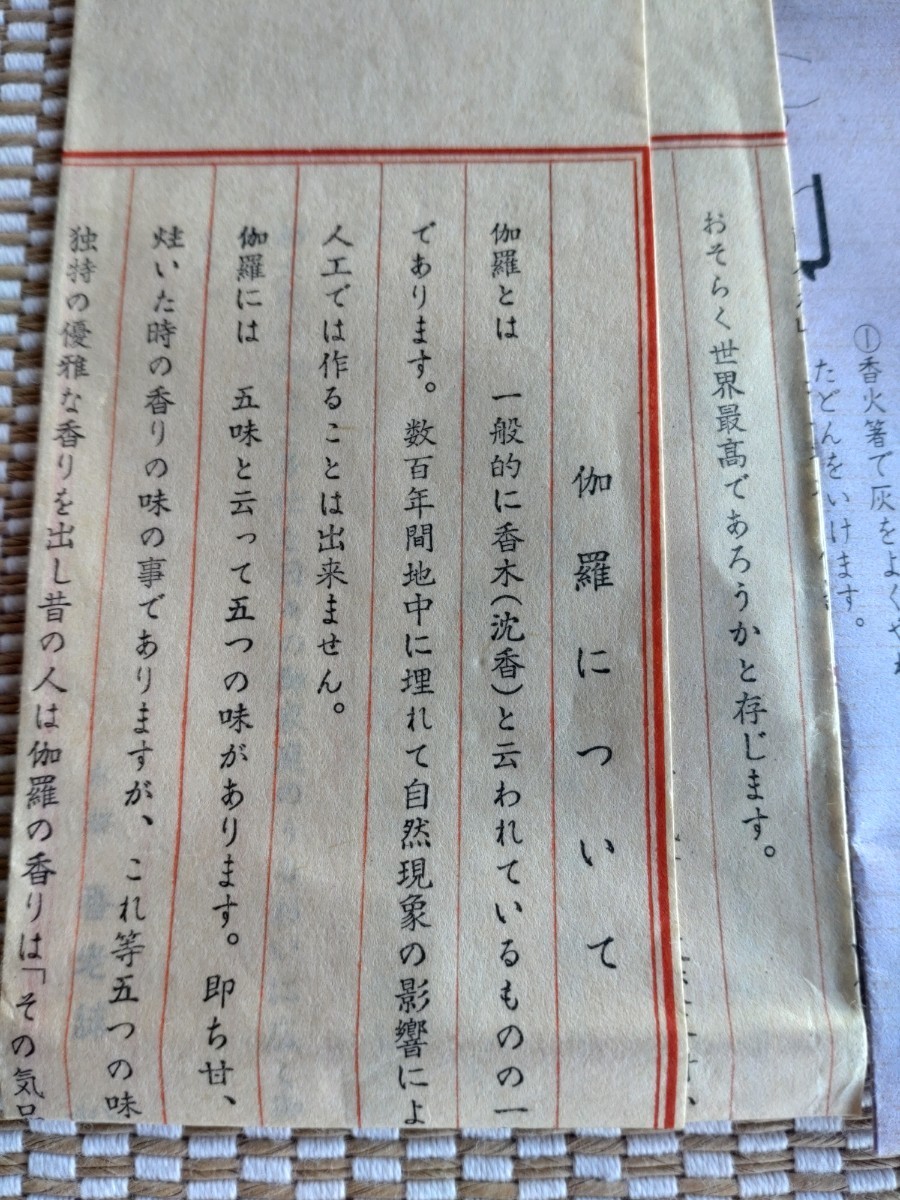 ①香火箸で灰をよく
たどんをいけます。
おそらく世界最高であろうかと存じます。
伽羅について
伽羅とは　一般的に香木（沈香）と云われているものの一
であります。数百年間地中に埋れて自然現象の影響によ
人工では作ることは出来ません。
伽羅には　五味と云って五つの味があります。即ち甘、
炷いた時の香りの味の事でありますが、これ等五つの味
独特の優雅な香りを出し昔の人は伽羅の香りは「その気品